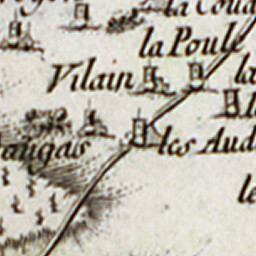 la Coud
la Poule
Vilain
la
augas
les Aud
le